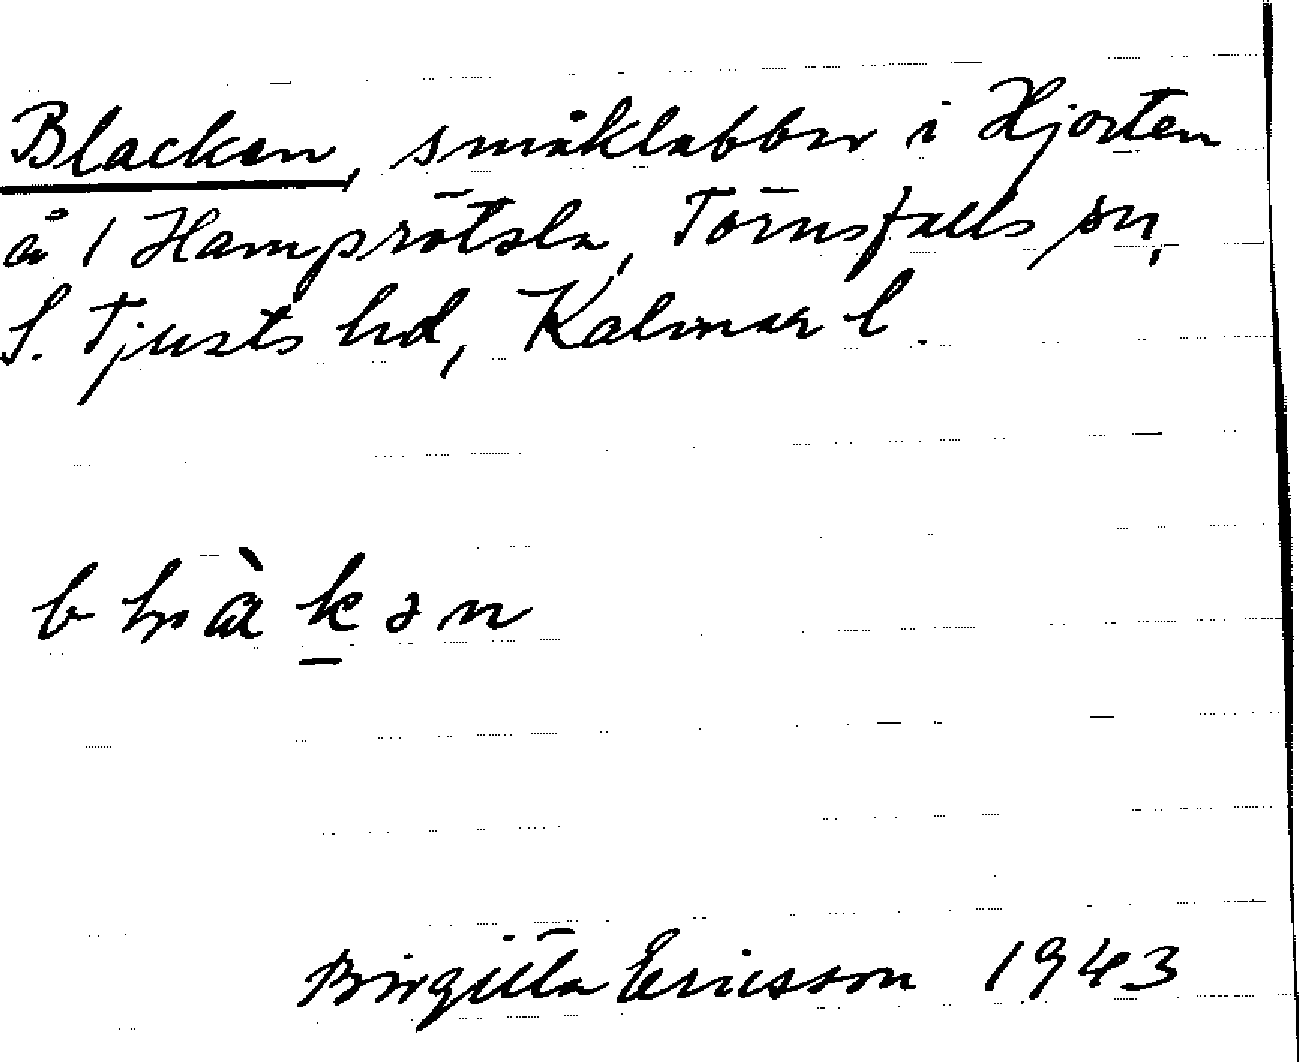 Blacken, småklabbar i Hjorten
å 1 Hamprötsla, Törnsfalls sn,
S. Tjusts hd, Kalmar l.
Birgitta Ericsson 1943